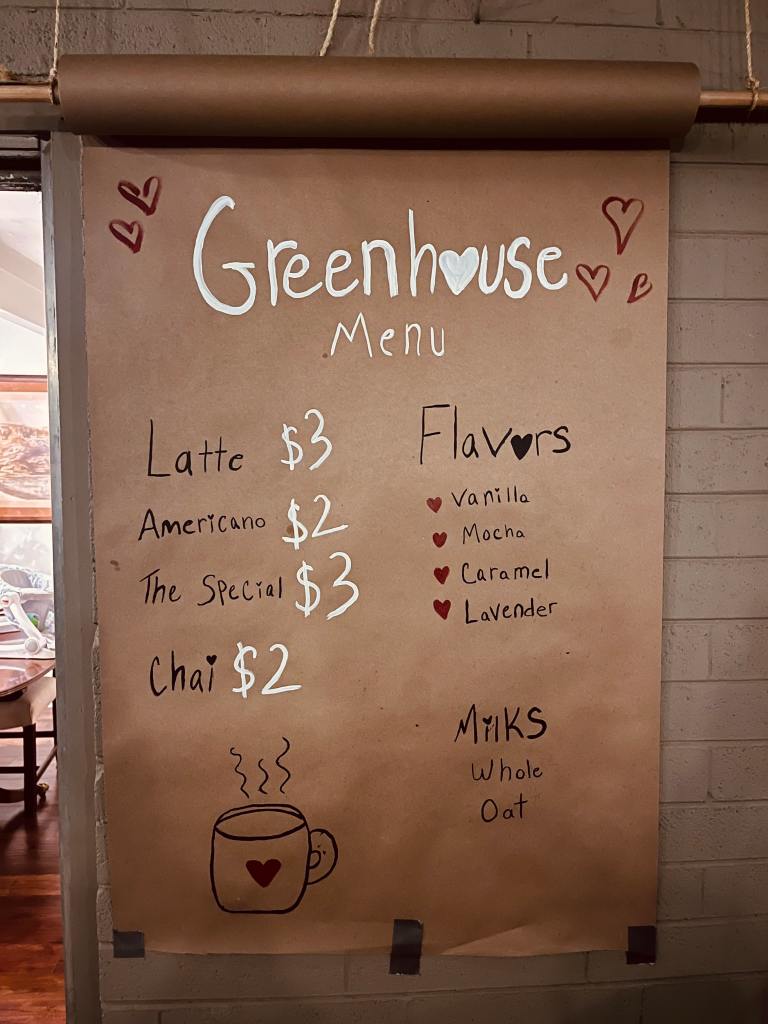 Greenhouse
Menu
Latte $3
Americano $2
The Special $3
Chai $2
Flavors
Vanilla
Mocha
Caramel
Lavender
Milks
Whole
Oat